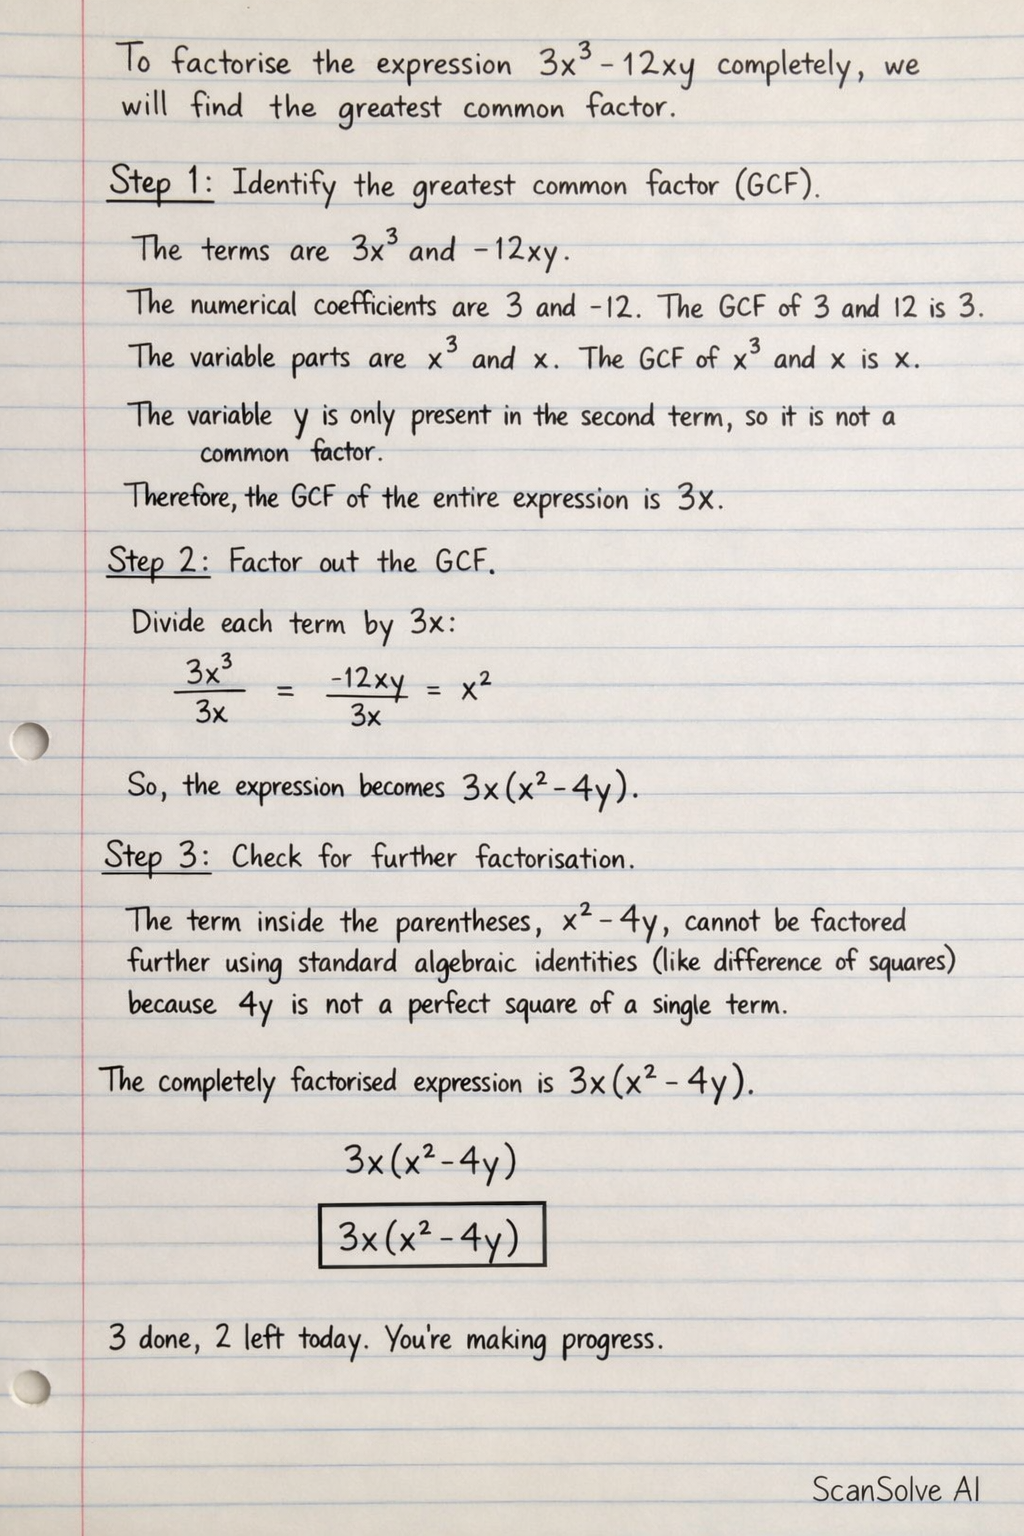 To factorise the expression 3x³ - 12xy completely, we
will find the greatest common factor.
Step 1: Identify the greatest common factor (GCF).
The terms are 3x³ and -12xy.
The numerical coefficients are 3 and -12. The GCF of 3 and 12 is 3.
The variable parts are x³ and x. The GCF of x³ and x is x.
The variable y is only present in the second term, so it is not a
common factor.
Therefore, the GCF of the entire expression is 3x.
Step 2: Factor out the GCF.
Divide each term by 3x:
3x³/3x = -12xy/3x = x²
So, the expression becomes 3x(x² - 4y).
Step 3: Check for further factorisation.
The term inside the parentheses, x² - 4y, cannot be factored
further using standard algebraic identities (like difference of squares)
because 4y is not a perfect square of a single term.
The completely factorised expression is 3x(x² - 4y).
3x(x² - 4y)
3x(x² - 4y)
3 done, 2 left today. You're making progress.
ScanSolve AI